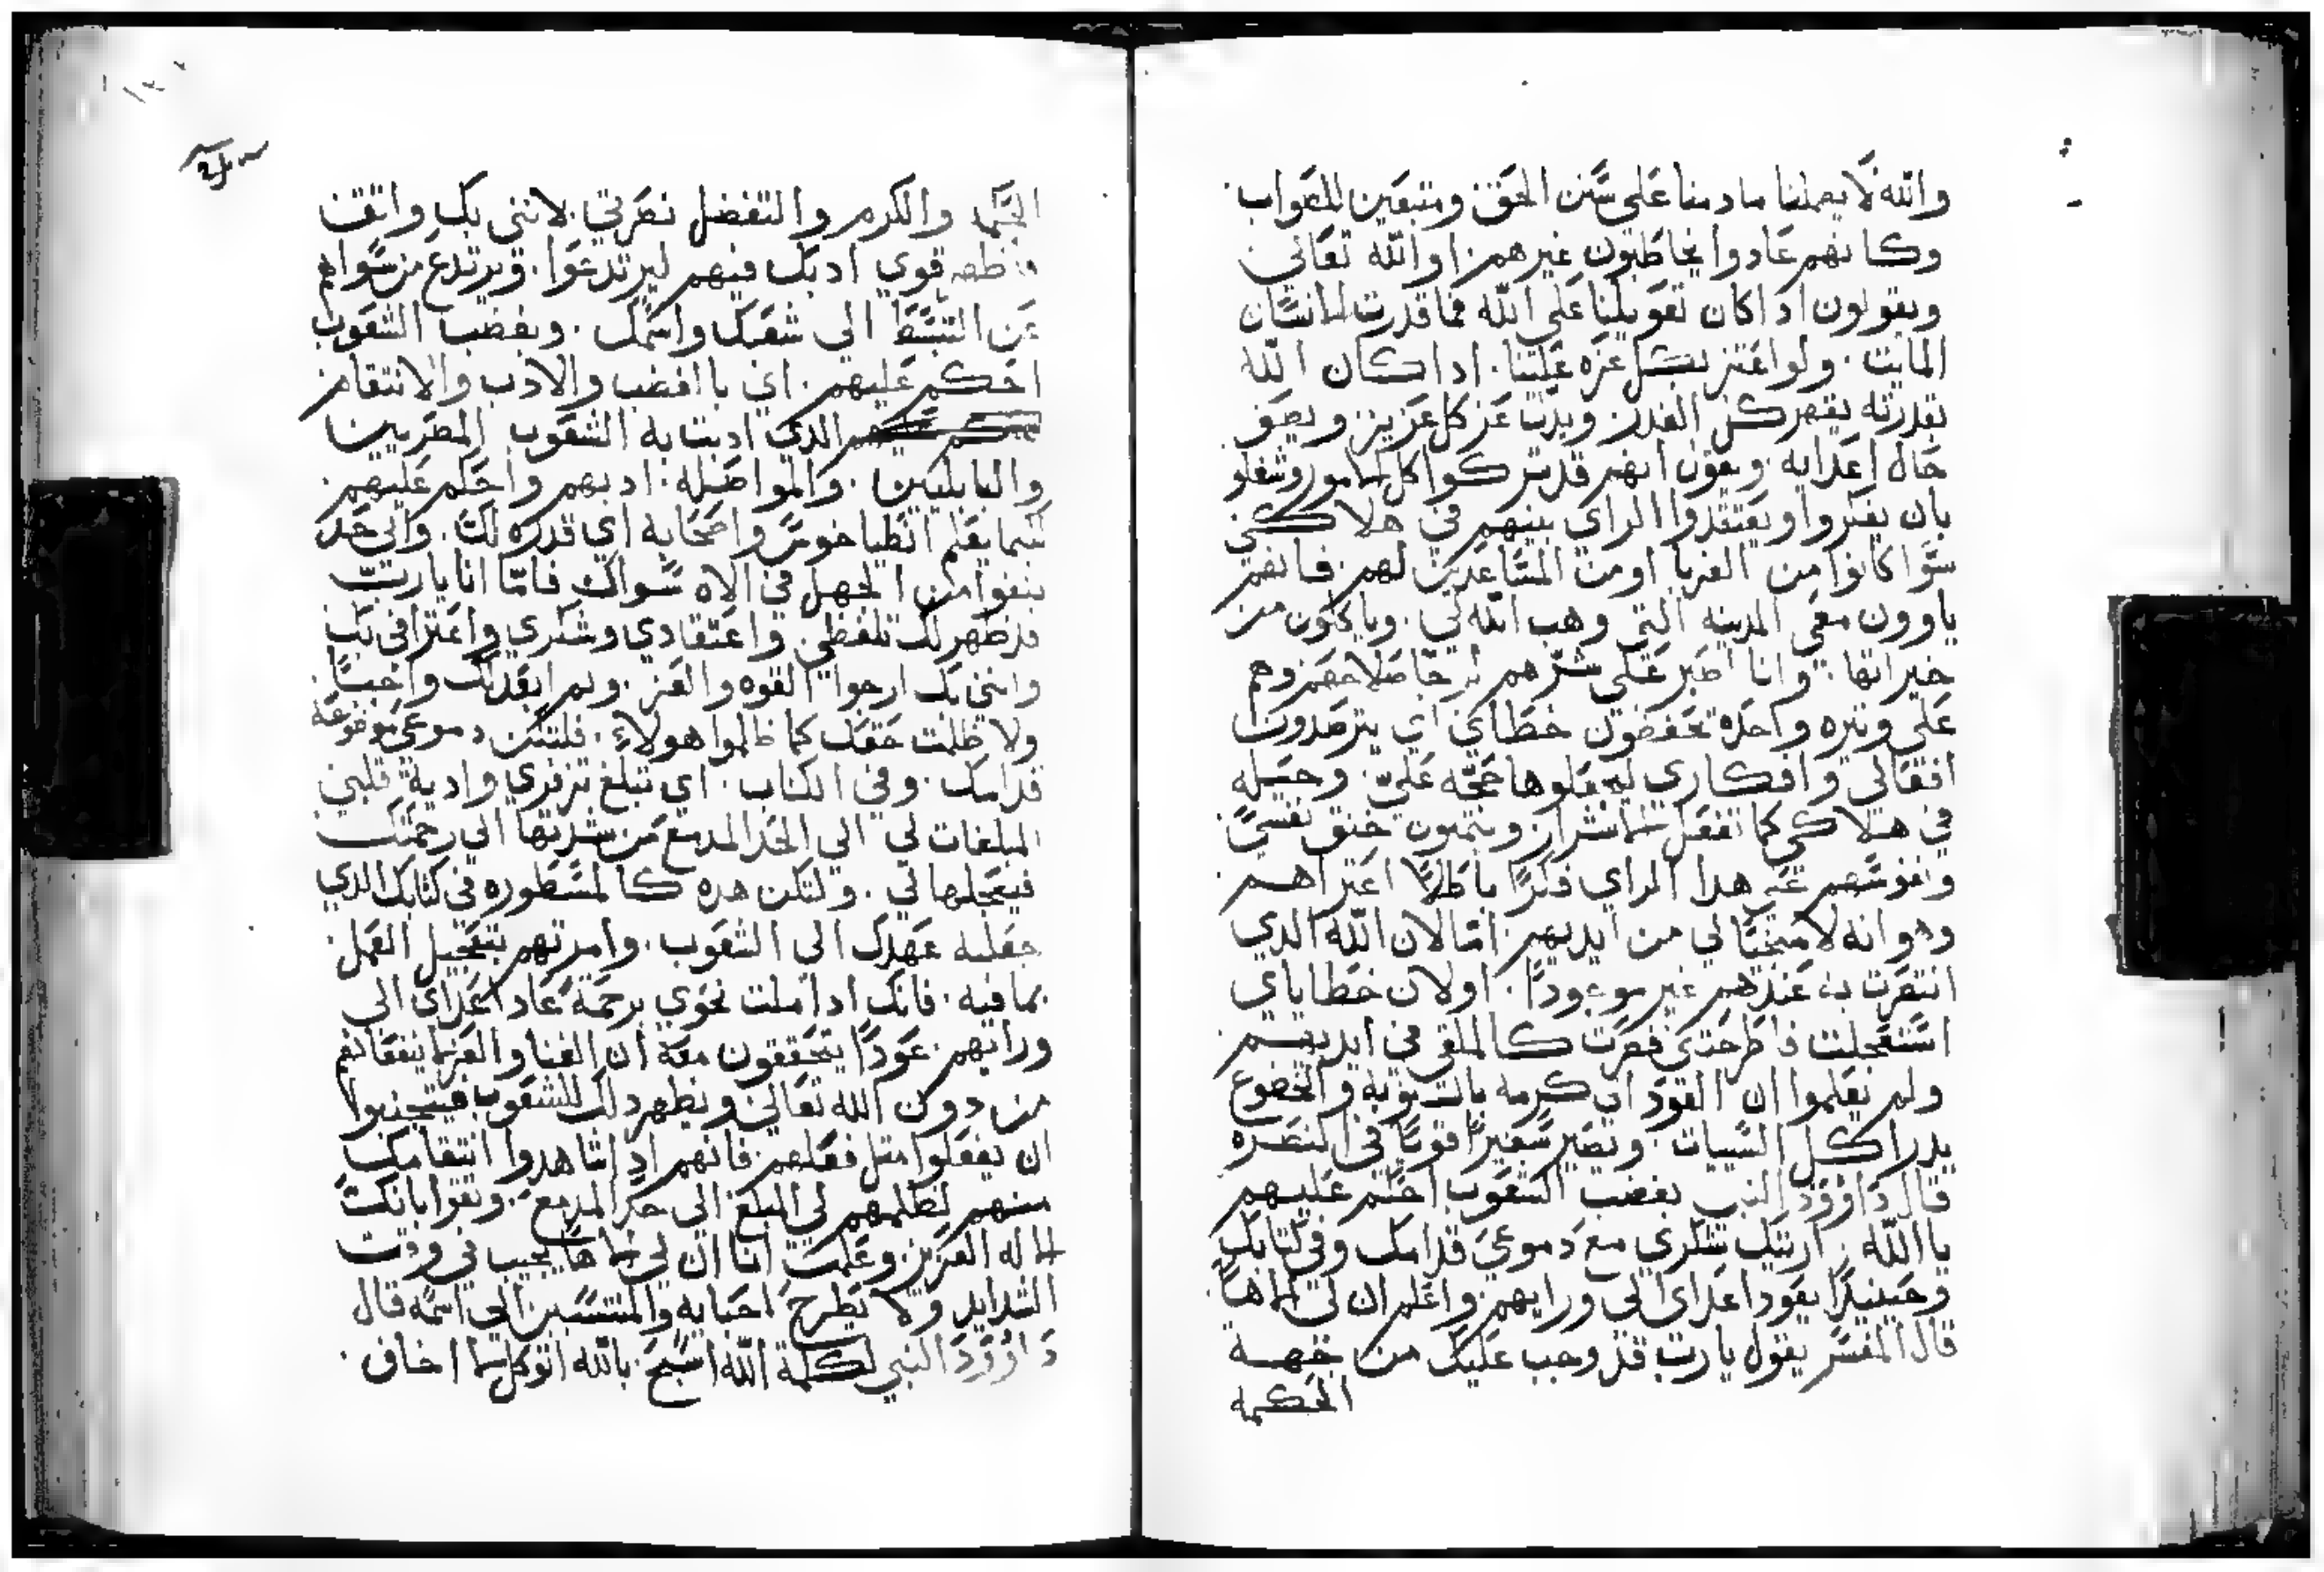 والله لا يهملنا ما دمنا على سنن الحق ومتبعين للصواب
وكانهم عادوا يخاطبون غيرهم اوالله تعالى
ويقولون ادا كان تعويلنا على الله فما قدرت الانسان
المايت ولو اعتز بكل عزه علينا ادا كان الله
بقدرته يقهر كل القدر ويدب عن كل عزيز ويصف
حال اعدايه ويقول انهم قد تركوا كل الامور وشغلو
بان يفكروا ويعتقدوا الراي بينهم في هلاكي
سوا كانوا من الغربا او من المساعدين لهم فانهم
ياوون معي المدينه التي وهب الله لي وياكلون من
خيراتها وانا اصبر على شرهم صلاحهم وهم
على وتيره واحده يحفضون خطاي اي يترصدون
افعالي وافكاري ليجعلوها حجه علي وحيله
في هلاكي كما تفعل الاشرار ويتمنون خنق نفسي
ونفوسهم هدا الراي فكرًا باطلًا اعتراهم
وهو انه لا منجا لي من ايديهم امّا لان الله الدي
انتصرت به عندهم غير موجودًا او لان خطاياي
استفحلت فاطرحتني فصرت كالملقى في ايديهم
ولم يعلموا ان العود الى كرمه بالتوبه والخضوع
يدرا كل السييات ويصير سفيرًا قويًا في النصره
قال داوود النبي بغضب الشعوب احكم عليهم
يا الله اريتك شكري مع دموعي قدامك وفي كتابك
وحينيدًا يعود اعداي الى ورايهم واعلم ان لي الاهًا
قال المفسر يقول يا رب قد وجب عليك من جهة
الحكمه
الحكمه والكرم والتفضل نصرتي لانني بك واثق
قوي ادبك فيهم ليرتدعوا ويرتدع من سواهم
عن التبسط الى شعبك واسمك وبغضب الشعوب
احكم عليهم اي باالغضب والادب والانتقام
الدي ادبت به الشعوب المصريين
والبابليين والمواصله ادبهم واحكم عليهم
كيما يعلم انطياخوس واصحابه اي قدره لك والى حد
بلغوا من الجهل في الاه سواك فامّا انا يا رب
فد ظهر لك تلفظي واعتقادي وشكري واعترافي بك
وانني بك ارجوا القوه والعز ولم ابعد لك واجبًا
ولا ظلمت حقك كما ظلموا هولاء فلتكن دموعي موضوعه
قدامك وفي الكتاب اي تبلغ تزفزي واديه قلبي
المبلغات لي الى الحد المدمع من شدتها الى رحمتك
فيعجلها لي ولتكن هده كالمسطوره في كتابك الدي
جعلته عهدك الى الشعوب وامرتهم بتعجيل العمل
بما فيه فانك ادا ملت نحوي برحمة عاد اعداي الى
ورايهم عودًا يتحققون معه ان الغنا والعز لا ينفعانهم
من دون الله تعالى ويظهر دلك للشعوب فيتجنبوا
ان يفعلوا مثل فعلهم فانهم ادا شاهدوا انتقامك
منهم لظلمهم لي المبلغ الى حد المدمع ويقروا بانك
الاله العزيز وعلمت انا ان لي الاهًا يجيب في وقت
الشدايد ولا يطرح احبابه والمنتسبين الى اسمه قال
داوود النبي لكلمة الله اسبح بالله اتوكل لا اخاف